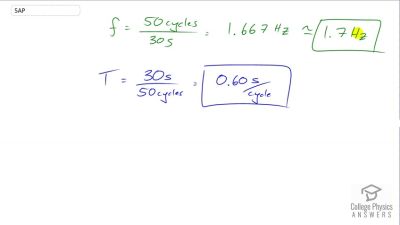 5AP
f = 50 cycles / 30 s = 1.667 Hz ≃ 1.7 Hz
T = 30 s / 50 cycles = 0.60 s/cycle
College Physics
ANSWERS